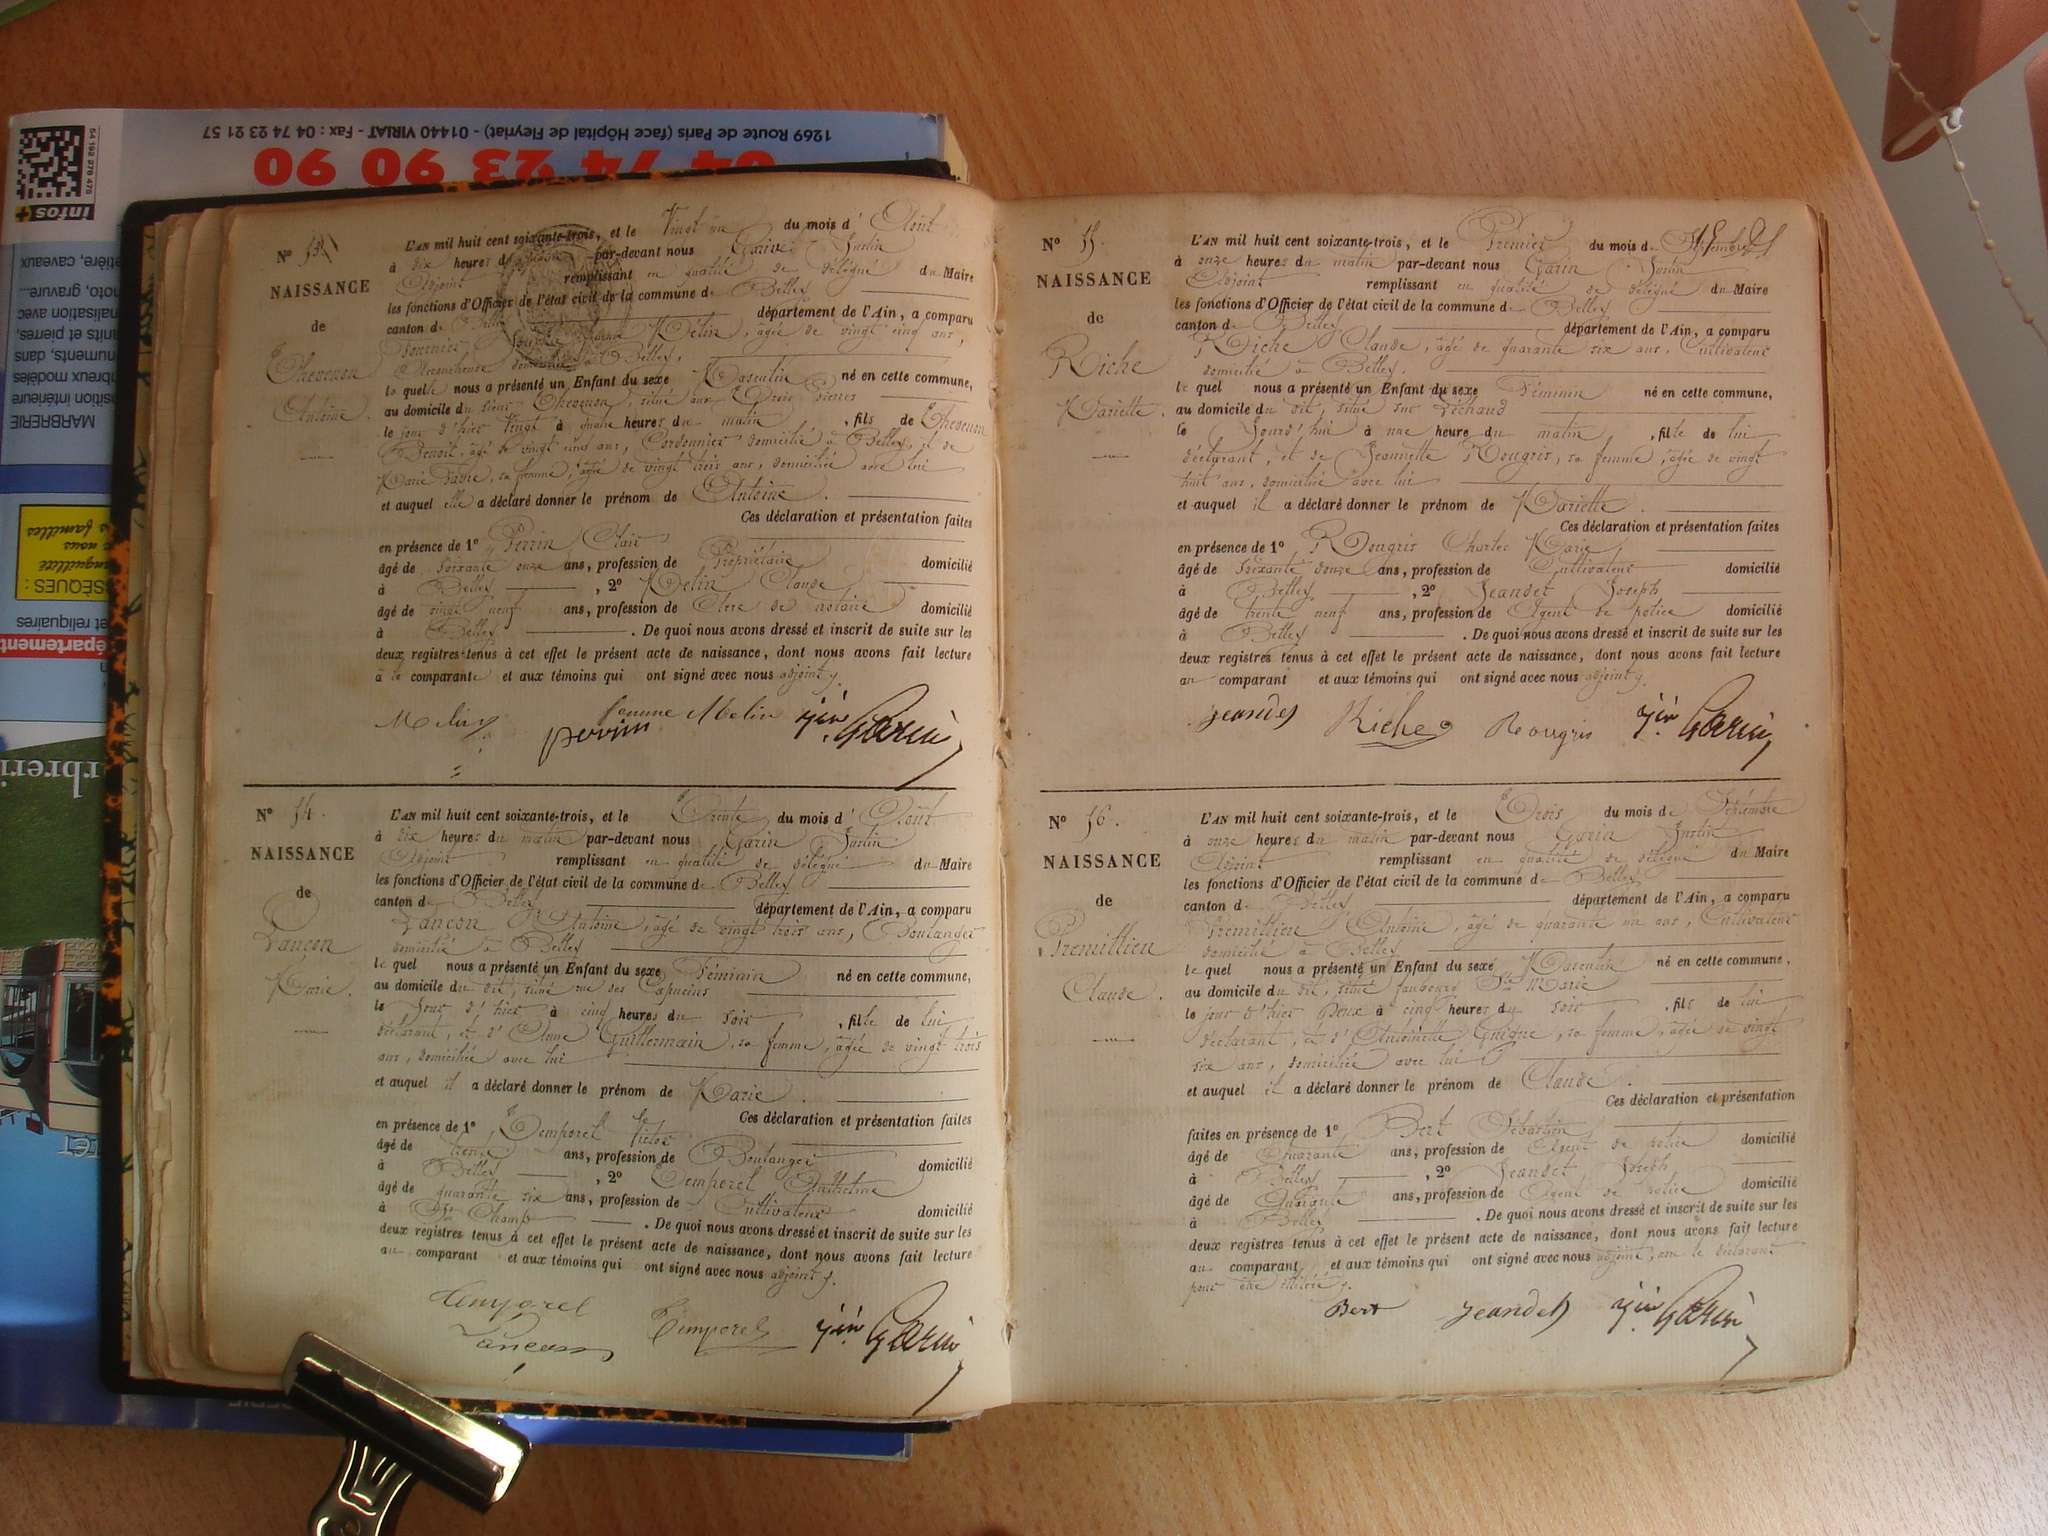 1269 Route de Paris (face Hôpital de Fleyriat) - 01440 VIRIAT - Fax : 04 74 23 21 57
04 74 23 90 90
infos+
MARBRERIE
Nº 53
NAISSANCE
de
Thevenon
Antoine.
L'AN mil huit cent soixante-trois, et le Vingt un du mois d' Août
à dix heures du matin par-devant nous Garin Justin
Adjoint remplissant en qualité de délégué du Maire
les fonctions d'Officier de l'état civil de la commune de Belley
canton de Belley département de l'Ain, a comparu
Mélin, âgée de vingt cinq ans,
Accoucheuse domiciliée à Belley,
la quelle nous a présenté un Enfant du sexe Masculin né en cette commune,
au domicile du sieur Thevenon, situé aux Trois pierres
le jour d'hier Vingt à quatre heures du matin, fils de Thevenon
Benoit, âgé de vingt cinq ans, Cordonnier domicilié à Belley, et de
Marie Fabre, sa femme, âgée de vingt trois ans, domiciliée avec lui
et auquel elle a déclaré donner le prénom de Antoine.
Ces déclaration et présentation faites
en présence de 1º Perrin Clair
âgé de soixante onze ans, profession de Propriétaire domicilié
à Belley, 2º Mélin Claude
âgé de vingt neuf ans, profession de Clerc de notaire domicilié
à Belley. De quoi nous avons dressé et inscrit de suite sur les
deux registres tenus à cet effet le présent acte de naissance, dont nous avons fait lecture
à la comparante et aux témoins qui ont signé avec nous adjoint
Melin perrin femme Melin Jin Garin
Nº 54.
NAISSANCE
de
Lançon
Marie.
L'AN mil huit cent soixante-trois, et le Trente du mois d' Août
à dix heures du matin par-devant nous Garin Justin
Adjoint remplissant en qualité de délégué du Maire
les fonctions d'Officier de l'état civil de la commune de Belley
canton de Belley département de l'Ain, a comparu
Lançon Antoine, âgé de vingt trois ans, Boulanger
domicilié à Belley
le quel nous a présenté un Enfant du sexe Féminin né en cette commune,
au domicile du dit, situé rue des Capucins
le jour d'hier à cinq heures du soir, fille de lui
déclarant, et d'Anne Guillermain, sa femme, âgée de vingt trois
ans, domiciliée avec lui
et auquel il a déclaré donner le prénom de Marie.
Ces déclaration et présentation faites
en présence de 1º Temporel Victor
âgé de trente ans, profession de Boulanger domicilié
à Belley, 2º Temporel Anthelme
âgé de quarante six ans, profession de Cultivateur domicilié
à St Champ. De quoi nous avons dressé et inscrit de suite sur les
deux registres tenus à cet effet le présent acte de naissance, dont nous avons fait lecture
au comparant et aux témoins qui ont signé avec nous adjoint
Temporel Temporel Jin Garin
Lançon
Nº 55.
NAISSANCE
de
Riche
Mariette.
L'AN mil huit cent soixante-trois, et le Premier du mois de Septembre
à onze heures du matin par-devant nous Garin Justin
Adjoint remplissant en qualité de délégué du Maire
les fonctions d'Officier de l'état civil de la commune de Belley
canton de Belley département de l'Ain, a comparu
Riche Claude, âgé de quarante six ans, Cultivateur
domicilié à Belley.
le quel nous a présenté un Enfant du sexe Féminin né en cette commune,
au domicile du dit, situé sur Léchaud
le jourd'hui à une heure du matin, fille de lui
déclarant, et de Jeannette Rougris, sa femme, âgée de vingt
huit ans, domiciliée avec lui
et auquel il a déclaré donner le prénom de Mariette.
Ces déclaration et présentation faites
en présence de 1º Rougris Charles Marie
âgé de soixante douze ans, profession de Cultivateur domicilié
à Belley, 2º Jeandet Joseph
âgé de trente neuf ans, profession de Agent de police domicilié
à Belley. De quoi nous avons dressé et inscrit de suite sur les
deux registres tenus à cet effet le présent acte de naissance, dont nous avons fait lecture
au comparant et aux témoins qui ont signé avec nous adjoint
Jeandet Riche Rougris Jin Garin
Nº 56.
NAISSANCE
de
Premillieu
Claude.
L'AN mil huit cent soixante-trois, et le Trois du mois de Septembre
à onze heures du matin par-devant nous Garin Justin
Adjoint remplissant en qualité de délégué du Maire
les fonctions d'Officier de l'état civil de la commune de Belley
canton de Belley département de l'Ain, a comparu
Premillieu Antoine, âgé de quarante un ans, Cultivateur
domicilié à Belley
le quel nous a présenté un Enfant du sexe Masculin né en cette commune,
au domicile du dit, situé faubourg Ste Marie
le jour d'hier Deux à cinq heures du soir, fils de lui
déclarant, et d'Antoinette, sa femme, âgée de vingt
six ans, domiciliée avec lui
et auquel il a déclaré donner le prénom de Claude.
Ces déclaration et présentation
faites en présence de 1º Bert Sébastien
âgé de Quarante ans, profession de Agent de police domicilié
à Belley, 2º Jeandet Joseph
âgé de Quarante ans, profession de Agent de police domicilié
à Belley. De quoi nous avons dressé et inscrit de suite sur les
deux registres tenus à cet effet le présent acte de naissance, dont nous avons fait lecture
au comparant et aux témoins qui ont signé avec nous adjoint, non le déclarant
pour être illitéré
Bert Jeandet Jin Garin